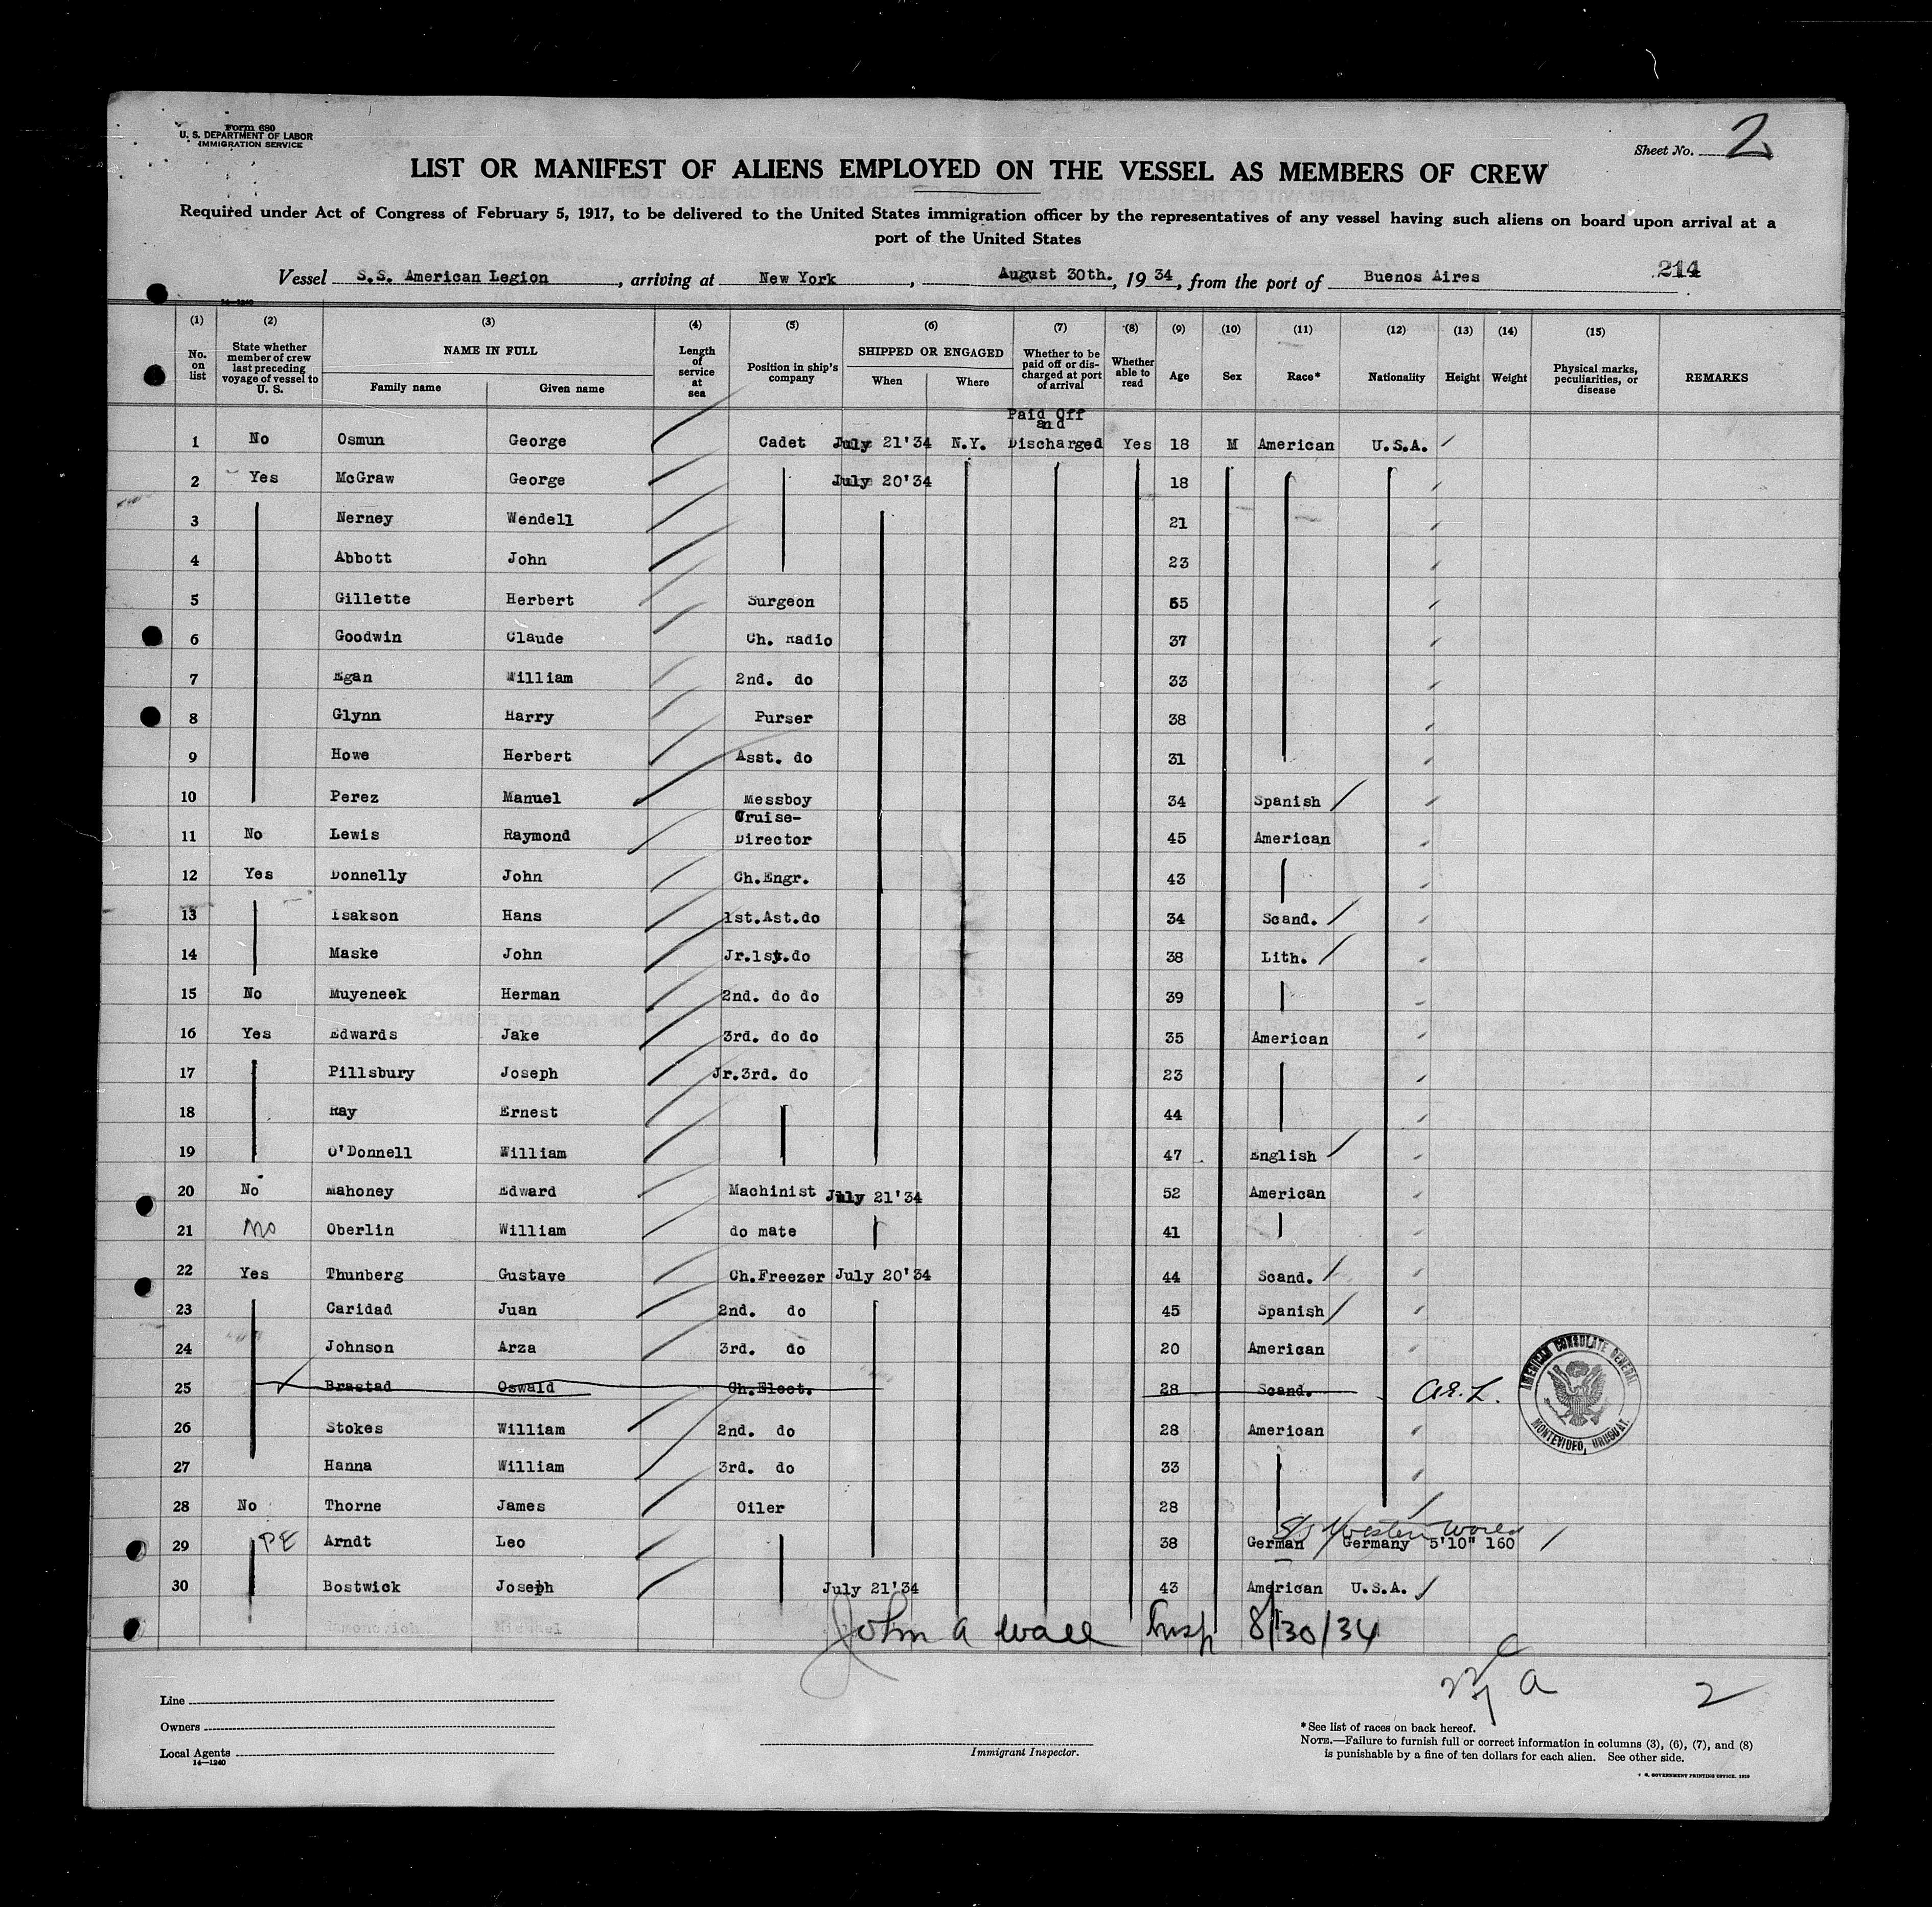 Form 680
U. S. DEPARTMENT OF LABOR
IMMIGRATION SERVICE
Sheet No. 2
LIST OR MANIFEST OF ALIENS EMPLOYED ON THE VESSEL AS MEMBERS OF CREW
Required under Act of Congress of February 5, 1917, to be delivered to the United States immigration officer by the representatives of any vessel having such aliens on board upon arrival at a
port of the United States
Vessel S.S. American Legion, arriving at New York, August 30th., 1934, from the port of Buenos Aires 214
14—1240
(1) (2) (3) (4) (5) (6) (7) (8) (9) (10) (11) (12) (13) (14) (15)
No. on list
State whether member of crew last preceding voyage of vessel to U. S.
NAME IN FULL
Family name Given name
Length of service at sea
Position in ship's company
SHIPPED OR ENGAGED
When Where
Whether to be paid off or discharged at port of arrival
Whether able to read
Age Sex Race* Nationality Height Weight
Physical marks, peculiarities, or disease
REMARKS
Paid Off
and
1 No Osmun George Cadet July 21'34 N.Y. Discharged Yes 18 M American U.S.A.
2 Yes McGraw George July 20'34 18
3 Nerney Wendell 21
4 Abbott John 23
5 Gillette Herbert Surgeon 55
6 Goodwin Claude Ch. Radio 37
7 Egan William 2nd. do 33
8 Glynn Harry Purser 38
9 Howe Herbert Asst. do 31
10 Perez Manuel Messboy 34 Spanish
11 No Lewis Raymond Cruise-Director 45 American
12 Yes Donnelly John Ch.Engr. 43
13 Isakson Hans 1st.Ast.do 34 Scand.
14 Maske John Jr.1st.do 38 Lith.
15 No Muyeneek Herman 2nd. do do 39
16 Yes Edwards Jake 3rd. do do 35 American
17 Pillsbury Joseph Jr.3rd. do 23
18 Ray Ernest 44
19 O'Donnell William 47 English
20 No Mahoney Edward Machinist July 21'34 52 American
21 No Oberlin William do mate 41
22 Yes Thunberg Gustave Ch.Freezer July 20'34 44 Scand.
23 Caridad Juan 2nd. do 45 Spanish
24 Johnson Arza 3rd. do 20 American
25 Brastad Oswald Ch.Elect. 28 Scand.
AMERICAN CONSULATE GENERAL
MONTEVIDEO, URUGUAY.
26 Stokes William 2nd. do 28 American
27 Hanna William 3rd. do 33
28 No Thorne James Oiler 28
S/S Western World
29 PE Arndt Leo 38 German Germany 5'10" 160
30 Bostwick Joseph July 21'34 43 American U.S.A.
Michael
John A Wall Insp 8/30/34
2
Line
Owners
Local Agents
14—1240
Immigrant Inspector.
*See list of races on back hereof.
NOTE.—Failure to furnish full or correct information in columns (3), (6), (7), and (8)
is punishable by a fine of ten dollars for each alien. See other side.